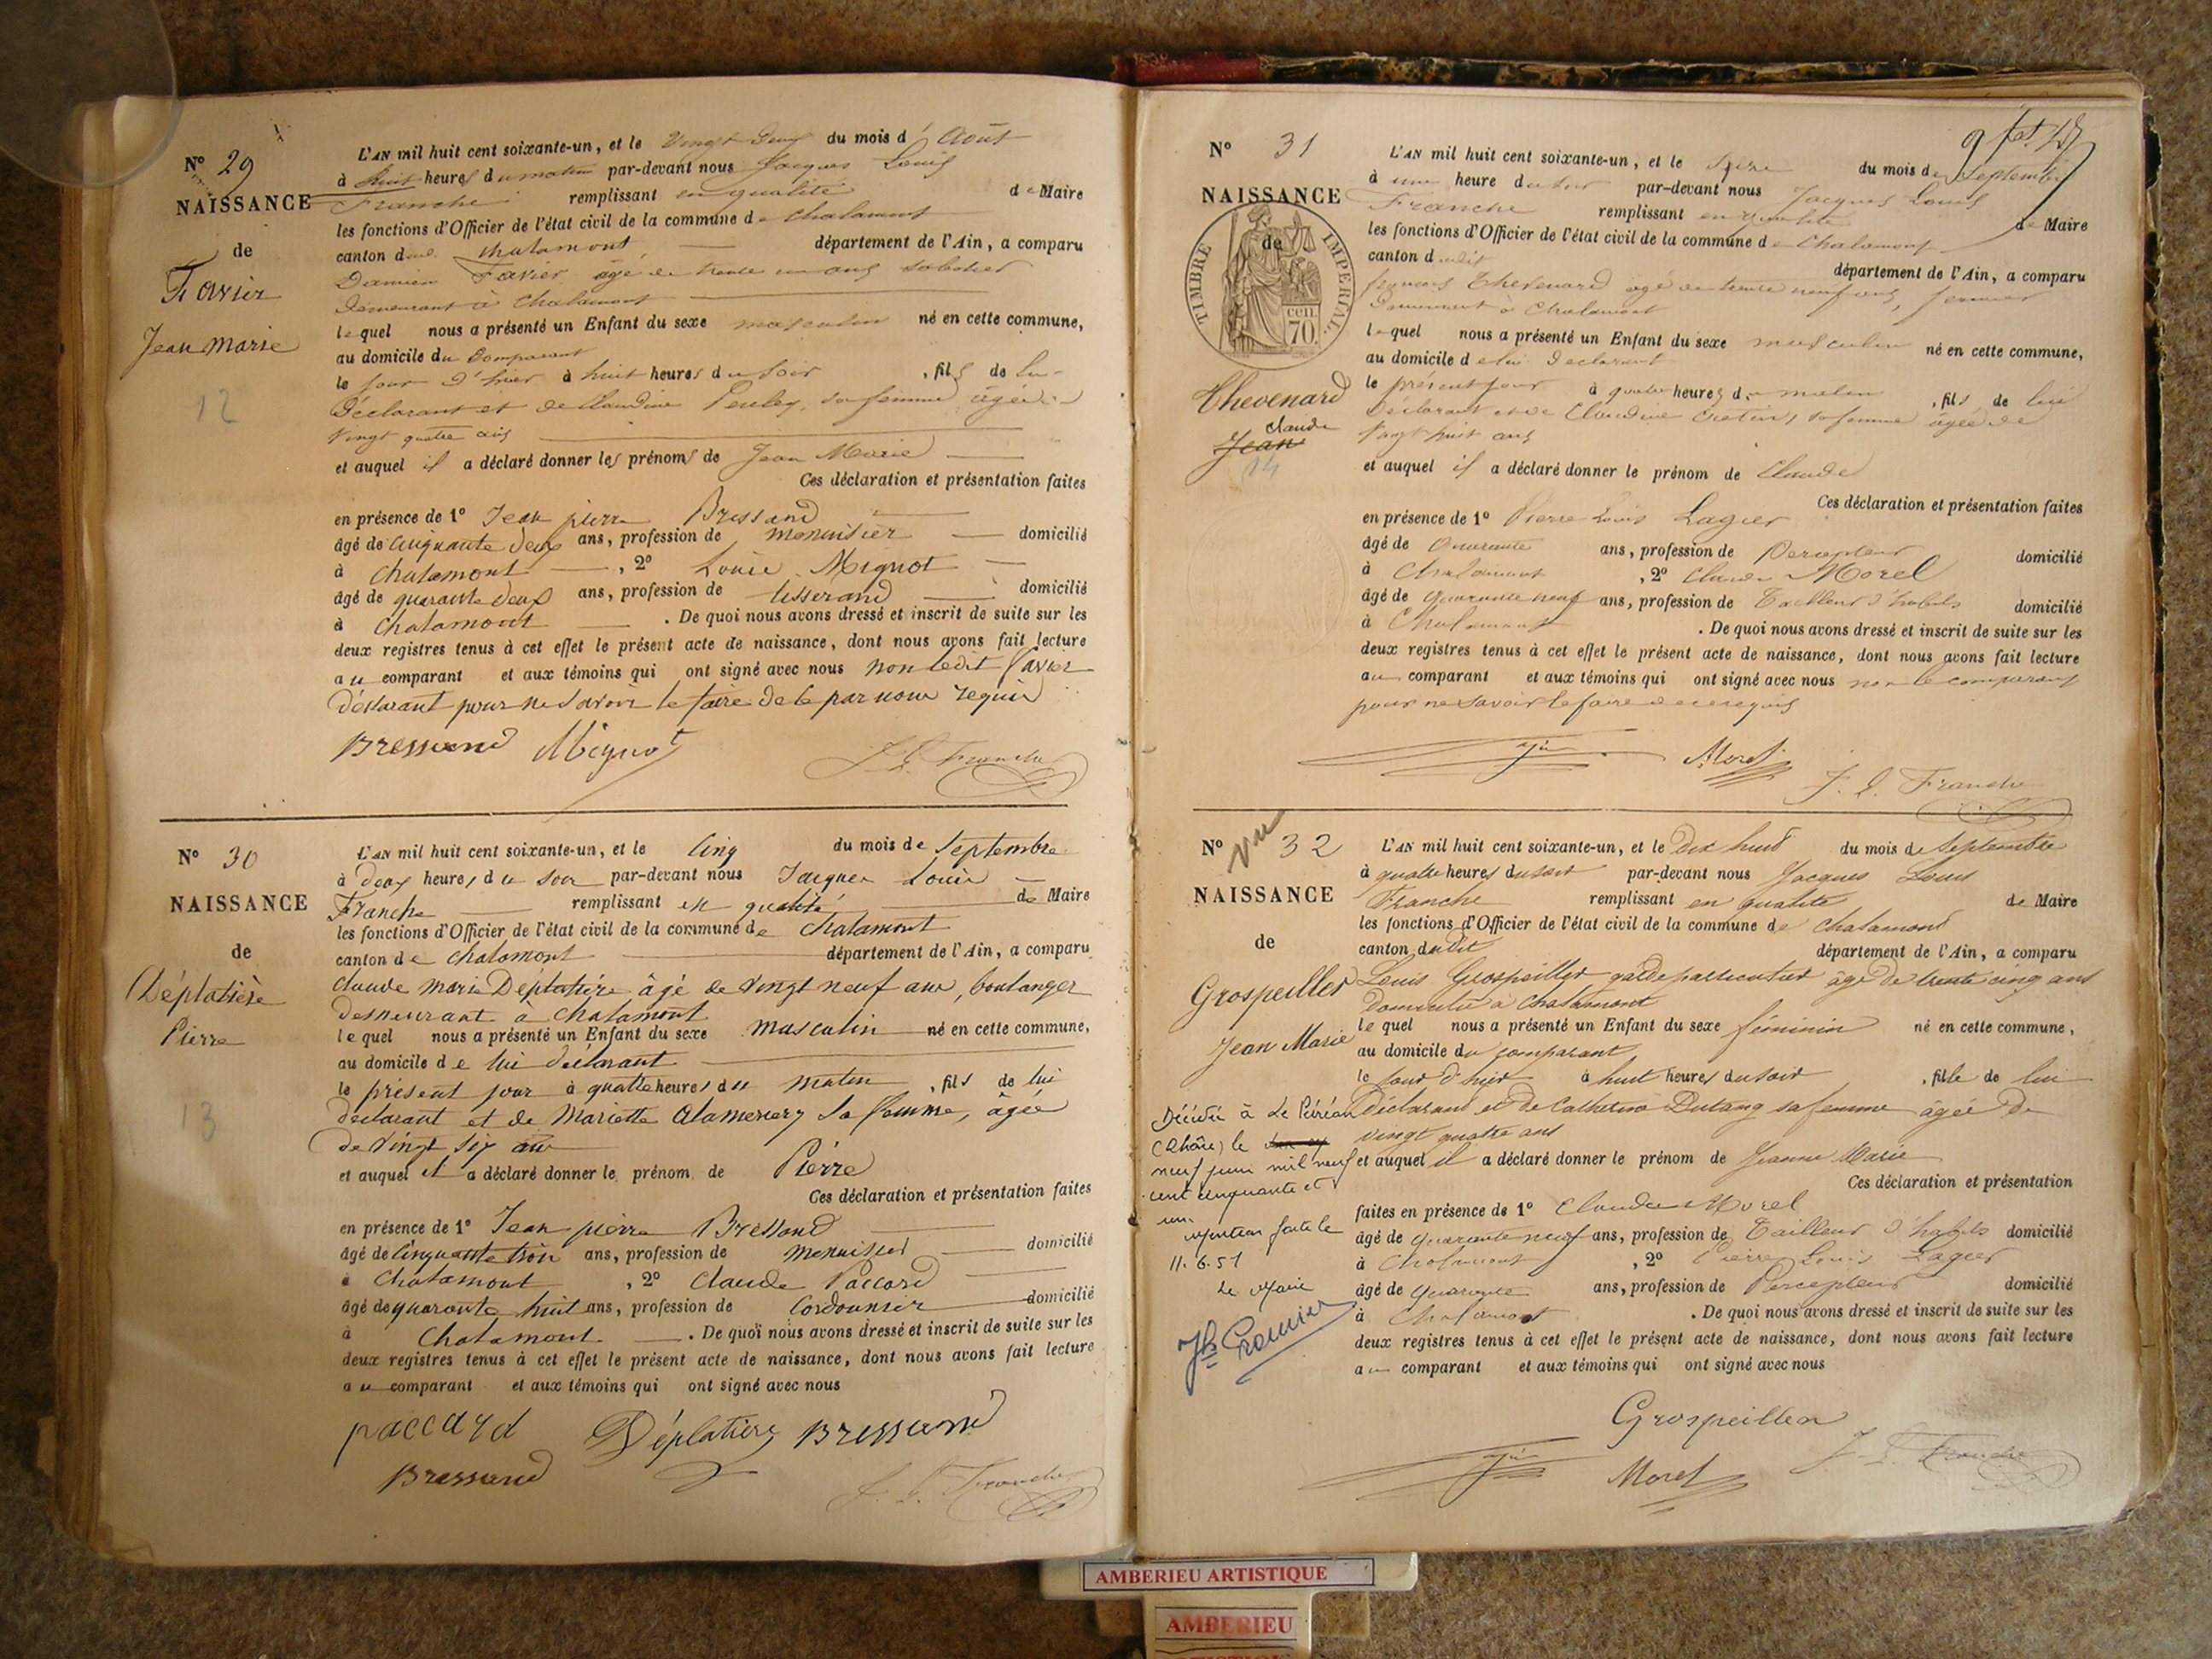 N° 29
NAISSANCE
de
Favier
Jean Marie
12
L'AN mil huit cent soixante-un, et le Vingt deux du mois d' Août
à huit heures du matin par-devant nous Jacques Louis
Franche remplissant en qualité de Maire
les fonctions d'Officier de l'état civil de la commune de Chalamont
canton de Chalamont département de l'Ain, a comparu
Damien Favier âgé de trente un ans sabotier
demeurant à Chalamont
lequel nous a présenté un Enfant du sexe masculin né en cette commune,
au domicile du Comparant
le jour d'hier à huit heures du soir, fils de lui
Déclarant et de Claudine sa femme âgée de
Vingt quatre ans
et auquel il a déclaré donner les prénoms de Jean Marie
Ces déclaration et présentation faites
en présence de 1° Jean pierre Bressand
âgé de Cinquante deux ans, profession de menuisier domicilié
à Chalamont, 2° Louis Mignot
âgé de quarante deux ans, profession de tisserand domicilié
à Chalamont. De quoi nous avons dressé et inscrit de suite sur les
deux registres tenus à cet effet le présent acte de naissance, dont nous avons fait lecture
au comparant et aux témoins qui ont signé avec nous non ledit Favier
déclarant pour ne savoir le faire de ce par nous requis
Bressand Mignot J. L. Franche
N° 30
NAISSANCE
de
Déplatière
Pierre
13
L'AN mil huit cent soixante-un, et le Cinq du mois de Septembre
à deux heures du soir par-devant nous Jacques Louis
Franche remplissant en qualité de Maire
les fonctions d'Officier de l'état civil de la commune de Chalamont
canton de Chalamont département de l'Ain, a comparu
Claude marie Déplatière âgé de vingt neuf ans, boulanger
demeurant a Chalamont
lequel nous a présenté un Enfant du sexe masculin né en cette commune,
au domicile de lui déclarant
le présent jour à quatre heures du matin, fils de lui
déclarant et de Mariette sa femme, âgée
de vingt six ans
et auquel il a déclaré donner le prénom de Pierre
Ces déclaration et présentation faites
en présence de 1° Jean pierre Bressand
âgé de Cinquante trois ans, profession de menuisier domicilié
à Chalamont, 2° Claude Paccard
âgé de quarante huit ans, profession de Cordonnier domicilié
à Chalamont. De quoi nous avons dressé et inscrit de suite sur les
deux registres tenus à cet effet le présent acte de naissance, dont nous avons fait lecture
au comparant et aux témoins qui ont signé avec nous
paccard Déplatière Bressand
Bressand J. L. Franche
N° 31
NAISSANCE
de
TIMBRE IMPERIAL
70 cen
Thevenard
Claude
Jean
14
L'AN mil huit cent soixante-un, et le seize du mois de Septembre
à une heure du soir par-devant nous Jacques Louis
Franche remplissant en qualité de Maire
les fonctions d'Officier de l'état civil de la commune de Chalamont
canton dudit département de l'Ain, a comparu
françois Thevenard âgé de trente neuf ans, fermier
Demeurant à Chalamont
lequel nous a présenté un Enfant du sexe masculin né en cette commune,
au domicile de lui Declarant
le présent jour à quatre heures du matin, fils de lui
Déclarant et de Claudine Cretin, sa femme âgée de
Vingt huit ans
et auquel il a déclaré donner le prénom de Claude
Ces déclaration et présentation faites
en présence de 1° Pierre Louis Lagier
âgé de Quarante ans, profession de Percepteur domicilié
à Chalamont, 2° Claude Morel
âgé de Quarante neuf ans, profession de Tailleur d'habits domicilié
à Chalamont. De quoi nous avons dressé et inscrit de suite sur les
deux registres tenus à cet effet le présent acte de naissance, dont nous avons fait lecture
au comparant et aux témoins qui ont signé avec nous non le comparant
pour ne savoir le faire de ce requis
Morel J. L. Franche
N° 32
vu
NAISSANCE
de
Grospeiller
Jean Marie
L'AN mil huit cent soixante-un, et le Dix huit du mois de Septembre
à quatre heures du soir par-devant nous Jacques Louis
Franche remplissant en qualité de Maire
les fonctions d'Officier de l'état civil de la commune de Chalamont
canton dudit département de l'Ain, a comparu
Louis Grospeiller garde particulier âgé de trente cinq ans
Domicilié à Chalamont
lequel nous a présenté un Enfant du sexe féminin né en cette commune,
au domicile du comparant
le jour d'hier à huit heures du soir, fille de lui
Déclarant et de Catherine Dutang sa femme âgée de
vingt quatre ans
et auquel il a déclaré donner le prénom de Jeanne Marie
Ces déclaration et présentation
faites en présence de 1° Claude Morel
âgé de Quarante neuf ans, profession de Tailleur d'habits domicilié
à Chalamont, 2° Pierre Louis Lagier
âgé de Quarante ans, profession de Percepteur domicilié
à Chalamont. De quoi nous avons dressé et inscrit de suite sur les
deux registres tenus à cet effet le présent acte de naissance, dont nous avons fait lecture
au comparant et aux témoins qui ont signé avec nous
Grospeiller
Morel J. L. Franche
Décédée à Le Perréon
(Rhône) le
neuf juin mil neuf
cent cinquante et
un.
mention faite le
11.6.51
Le Maire
AMBERIEU ARTISTIQUE
AMBERIEU